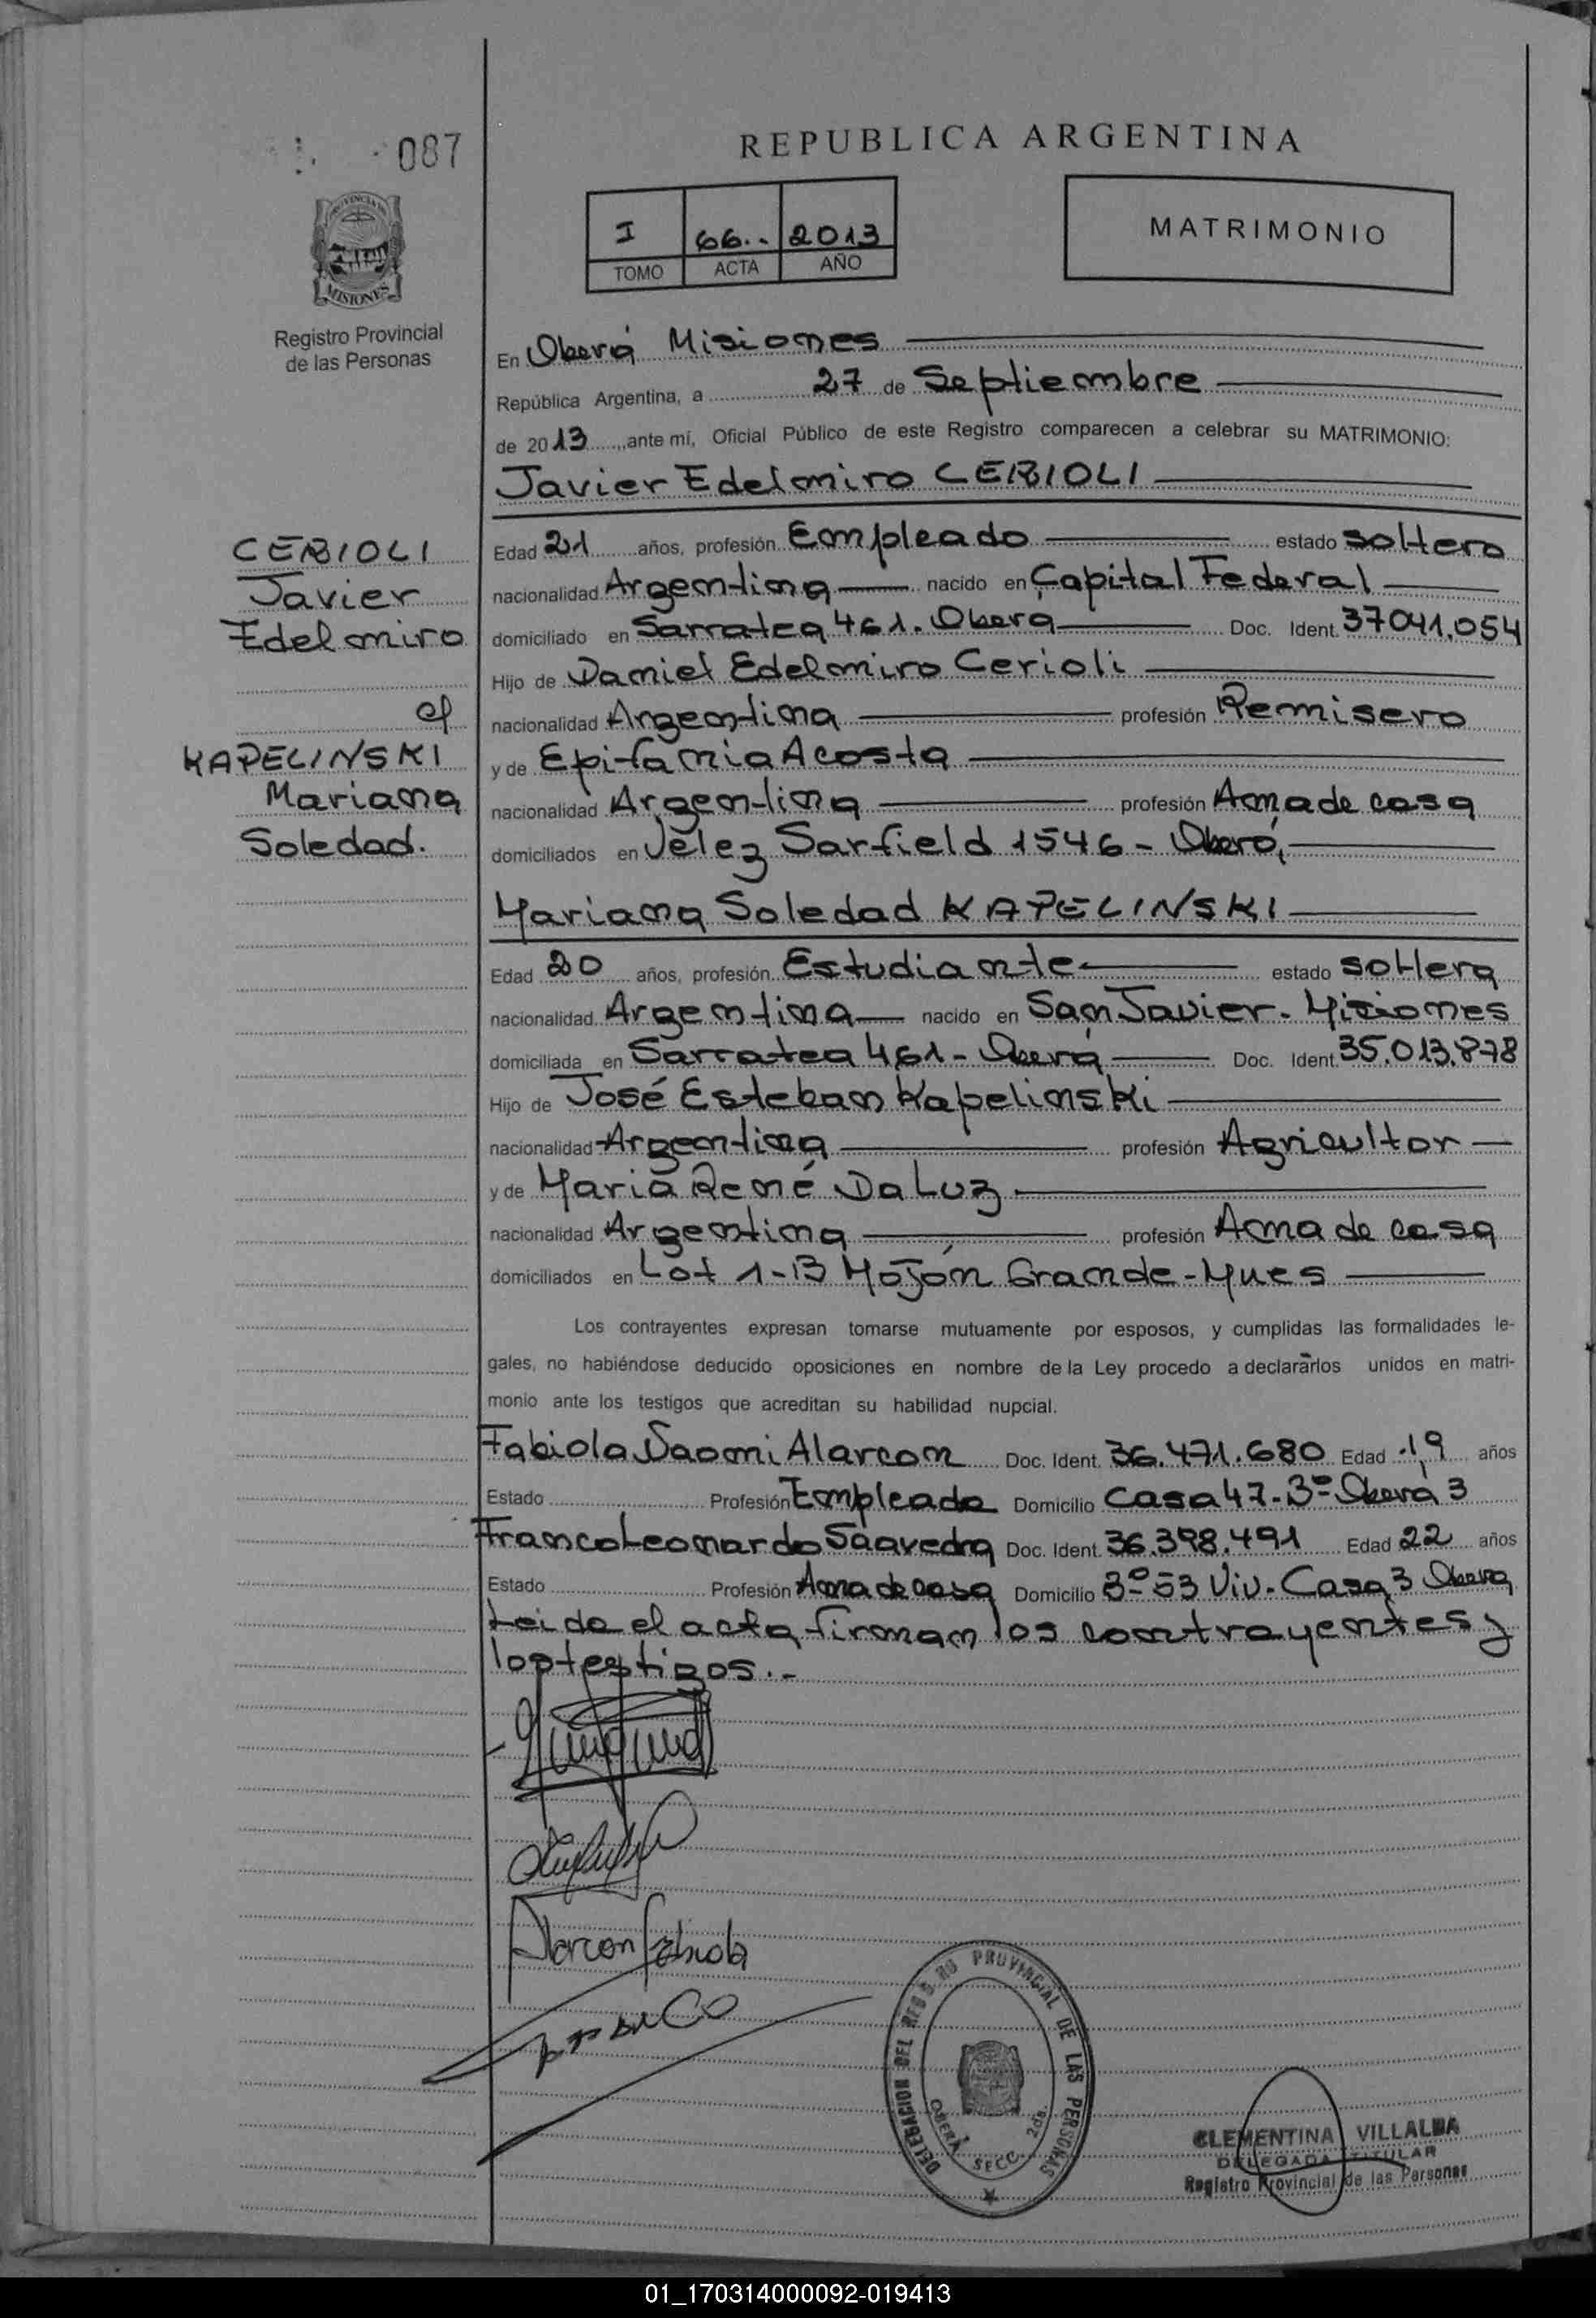 087
REPUBLICA ARGENTINA
I 66.. 2013
TOMO ACTA AÑO
MATRIMONIO
PROVINCIA DE
MISIONES
Registro Provincial
de las Personas
En Oberá Misiones
República Argentina, a 27 de Septiembre
de 2013, ante mí, Oficial Público de este Registro comparecen a celebrar su MATRIMONIO:
Javier Edelmiro CERIOLI
CERIOLI
Javier
Edelmiro
c/
KAPELINSKI
Mariana
Soledad.
Edad 21 años, profesión Empleado estado soltero
nacionalidad Argentina nacido en Capital Federal
domiciliado en Sarratea 461. Oberá Doc. Ident. 37041.054
Hijo de Daniel Edelmiro Cerioli
nacionalidad Argentina profesión Remisero
y de Epifania Acosta
nacionalidad Argentina profesión Ama de casa
domiciliados en Velez Sarfield 1546 - Oberá,
Mariana Soledad KAPELINSKI
Edad 20 años, profesión Estudiante estado soltera
nacionalidad Argentina nacido en San Javier. Misiones
domiciliada en Sarratea 461 - Oberá Doc. Ident. 35.013.878
Hijo de José Esteban Kapelinski
nacionalidad Argentina profesión Agricultor
y de Maria René Da Luz
nacionalidad Argentina profesión Ama de casa
domiciliados en Lot 1-B Mojón Grande - Mnes
Los contrayentes expresan tomarse mutuamente por esposos, y cumplidas las formalidades le-
gales, no habiéndose deducido oposiciones en nombre de la Ley procedo a declararlos unidos en matri-
monio ante los testigos que acreditan su habilidad nupcial.
Fabiola Naomi Alarcon Doc. Ident. 36.471.680 Edad 19 años
Estado Profesión Empleada Domicilio Casa 47. Bº Oberá 3
Franco Leonardo Saavedra Doc. Ident. 36.398.491 Edad 22 años
Estado Profesión Ama de casa Domicilio Bº 53 Viv. Casa 3 Oberá
Leido el acta firman los contrayentes y
los testigos.-
Alarcon Fabiola
Franco
DELEGACION DEL REGISTRO PROVINCIAL DE LAS PERSONAS
OBERÁ SECC. 2da.
CLEMENTINA VILLALBA
DELEGADA TITULAR
Registro Provincial de las Personas
01_170314000092-019413